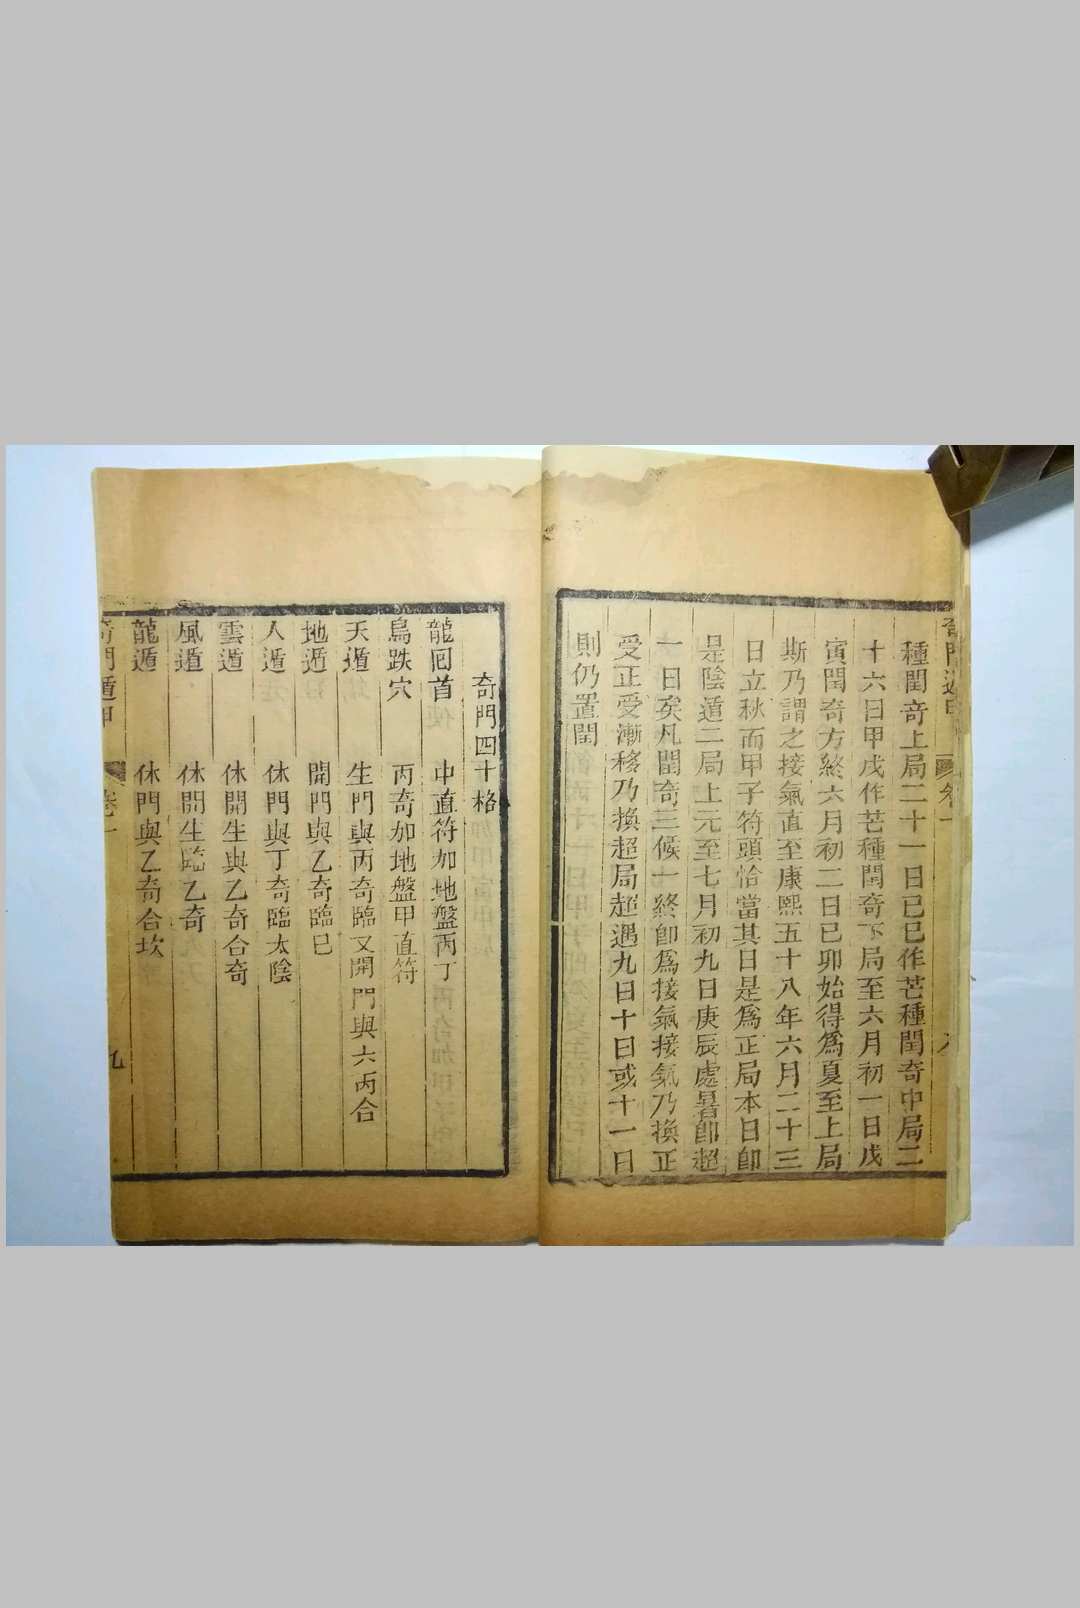 種閏奇上局二十一日己巳作芒種閏奇中局二
十六日甲戌作芒種閏奇下局至六月初一日戊
寅閏奇方終六月初二日己卯始得爲夏至上局
斯乃謂之接氣直至康熙五十八年六月二十三
日立秋而甲子符頭恰當其日是爲正局本日卽
是陰遁二局上元至七月初九日庚辰處暑卽超
一日矣凡閏奇三候一終卽爲接氣接氣乃換正
受正受漸移乃換超局超遇九日十日或十一日
則仍置閏
奇門四十格
龍回首 中直符加地盤丙丁
鳥跌穴 丙奇加地盤甲直符
天遁 生門與丙奇臨又開門與六丙合
地遁 開門與乙奇臨巳
人遁 休門與丁奇臨太陰
雲遁 休開生與乙奇合奇
風遁 休開生臨乙奇
龍遁 休門與乙奇合坎
奇門遁甲 卷一 九